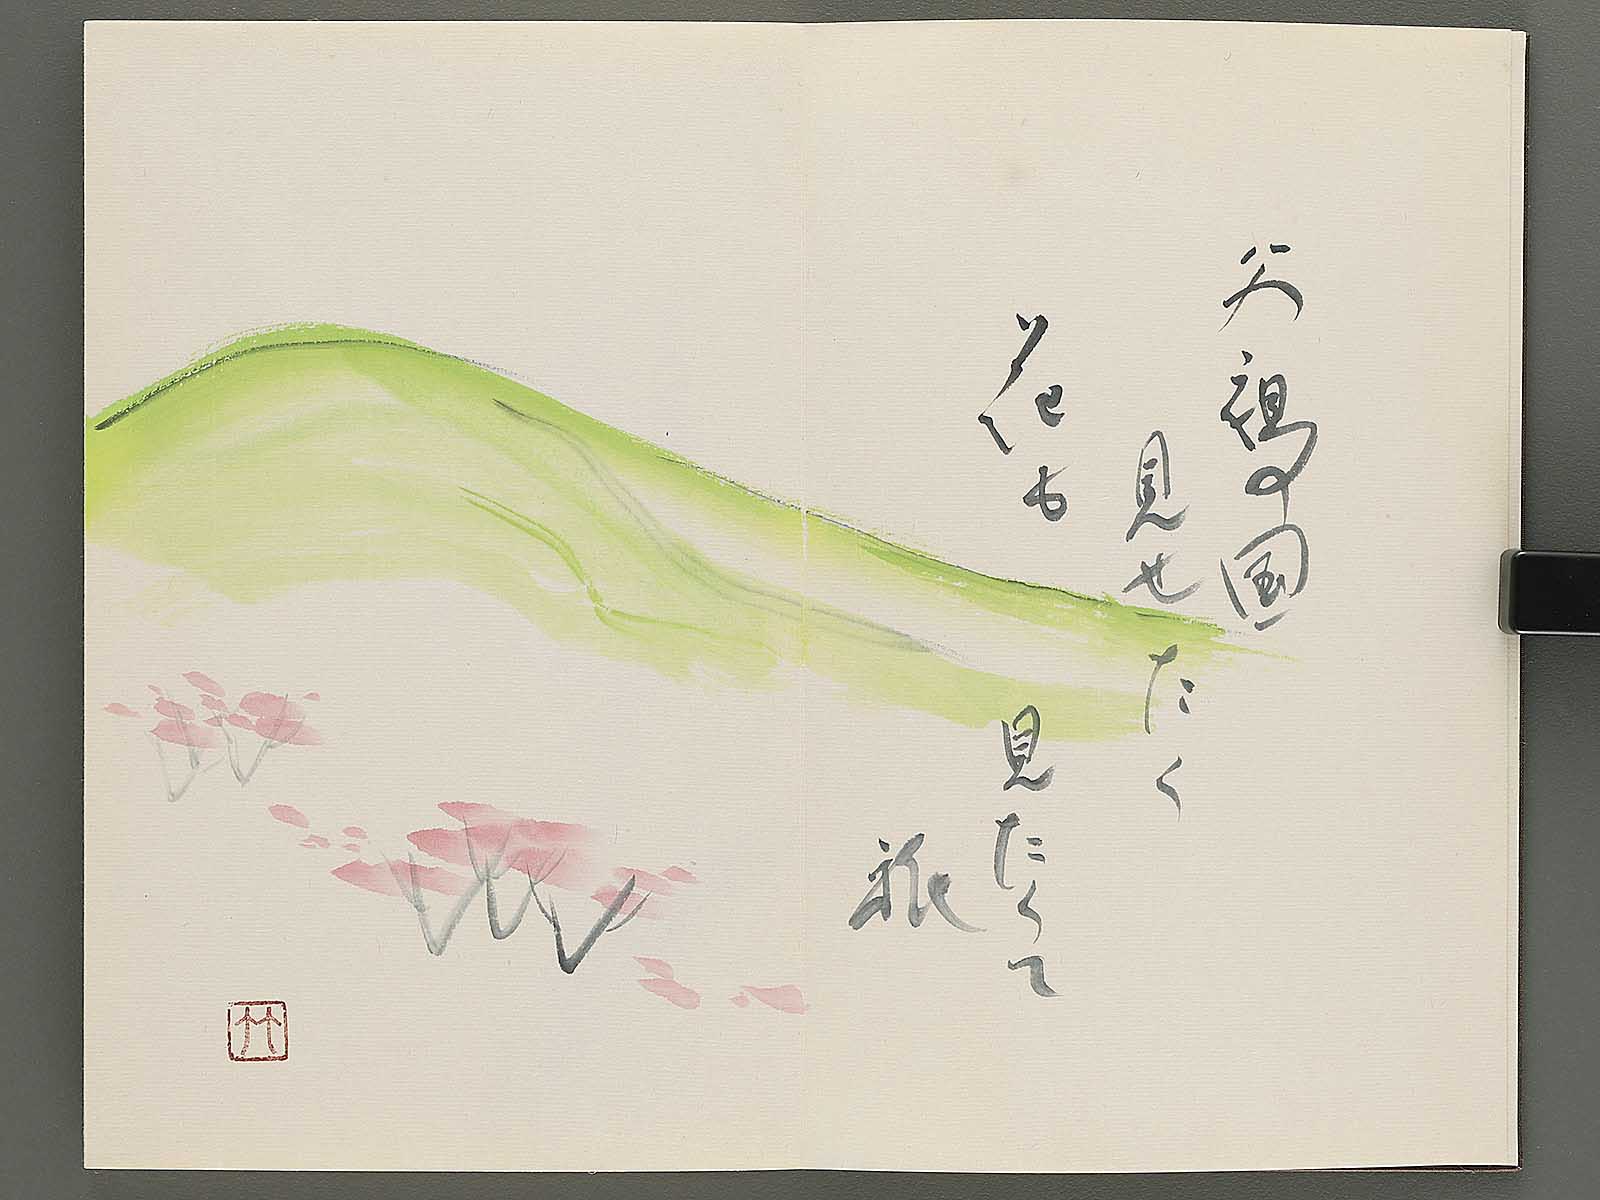 父祖の国
見せたく
花も見たくて
竹